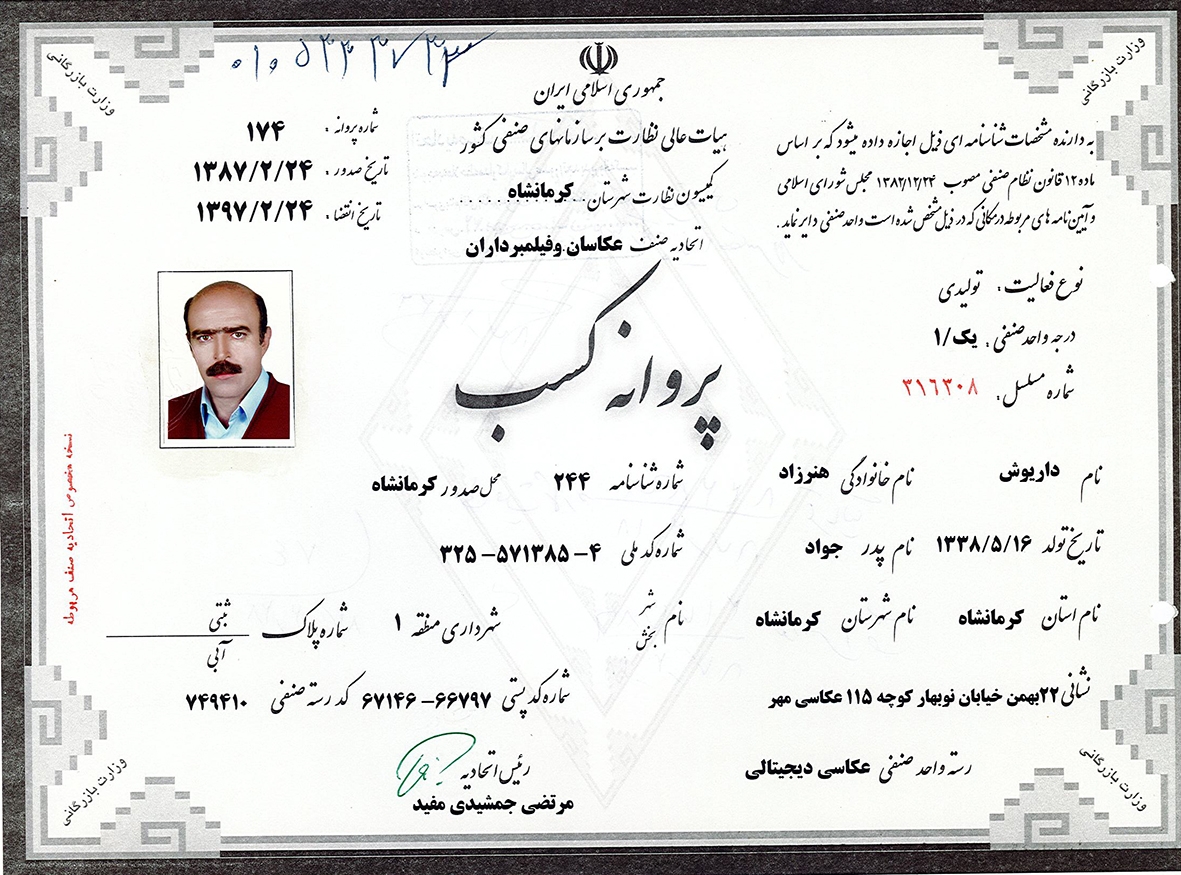 ۰۱۰۵۴۴۳۷۳۳
وزارت بازرگانی
وزارت بازرگانی
جمهوری اسلامی ایران
هیات عالی نظارت بر سازمانهای صنفی کشور
کمیسیون نظارت شهرستان کرمانشاه
اتحادیه صنف عکاسان وفیلمبرداران
به دارنده مشخصات شناسنامه ای ذیل اجازه داده میشود که بر اساس
ماده ۱۲ قانون نظام صنفی مصوب ۱۳۸۲/۱۲/۲۴ مجلس شورای اسلامی
و آیین نامه های مربوطه در مکانی که در ذیل مشخص شده است واحد صنفی دایر نماید.
شماره پروانه : ۱۷۴
تاریخ صدور : ۱۳۸۷/۲/۲۴
تاریخ انقضاء : ۱۳۹۷/۲/۲۴
نوع فعالیت : تولیدی
درجه واحد صنفی : یک/۱
شماره مسلسل : ۳۱۶۳۰۸
پروانه کسب
نام داریوش نام خانوادگی هنرزاد شماره شناسنامه ۲۴۴ محل صدور کرمانشاه
تاریخ تولد ۱۳۳۸/۵/۱۶ نام پدر جواد شماره کد ملی ۳۲۵-۵۷۱۳۸۵-۴
نام استان کرمانشاه نام شهرستان کرمانشاه نام شهر بخش شهرداری منطقه ۱ شماره پلاک ثبتی آبی
نشانی ۲۲بهمن خیابان نوبهار کوچه ۱۱۵ عکاسی مهر شماره کد پستی ۶۷۱۴۶-۶۶۷۹۷ کد رسته صنفی ۷۴۹۴۱۰
رسته واحد صنفی عکاسی دیجیتالی
رئیس اتحادیه
مرتضی جمشیدی مفید
نسخه مخصوص اتحادیه صنف مربوطه
وزارت بازرگانی
وزارت بازرگانی